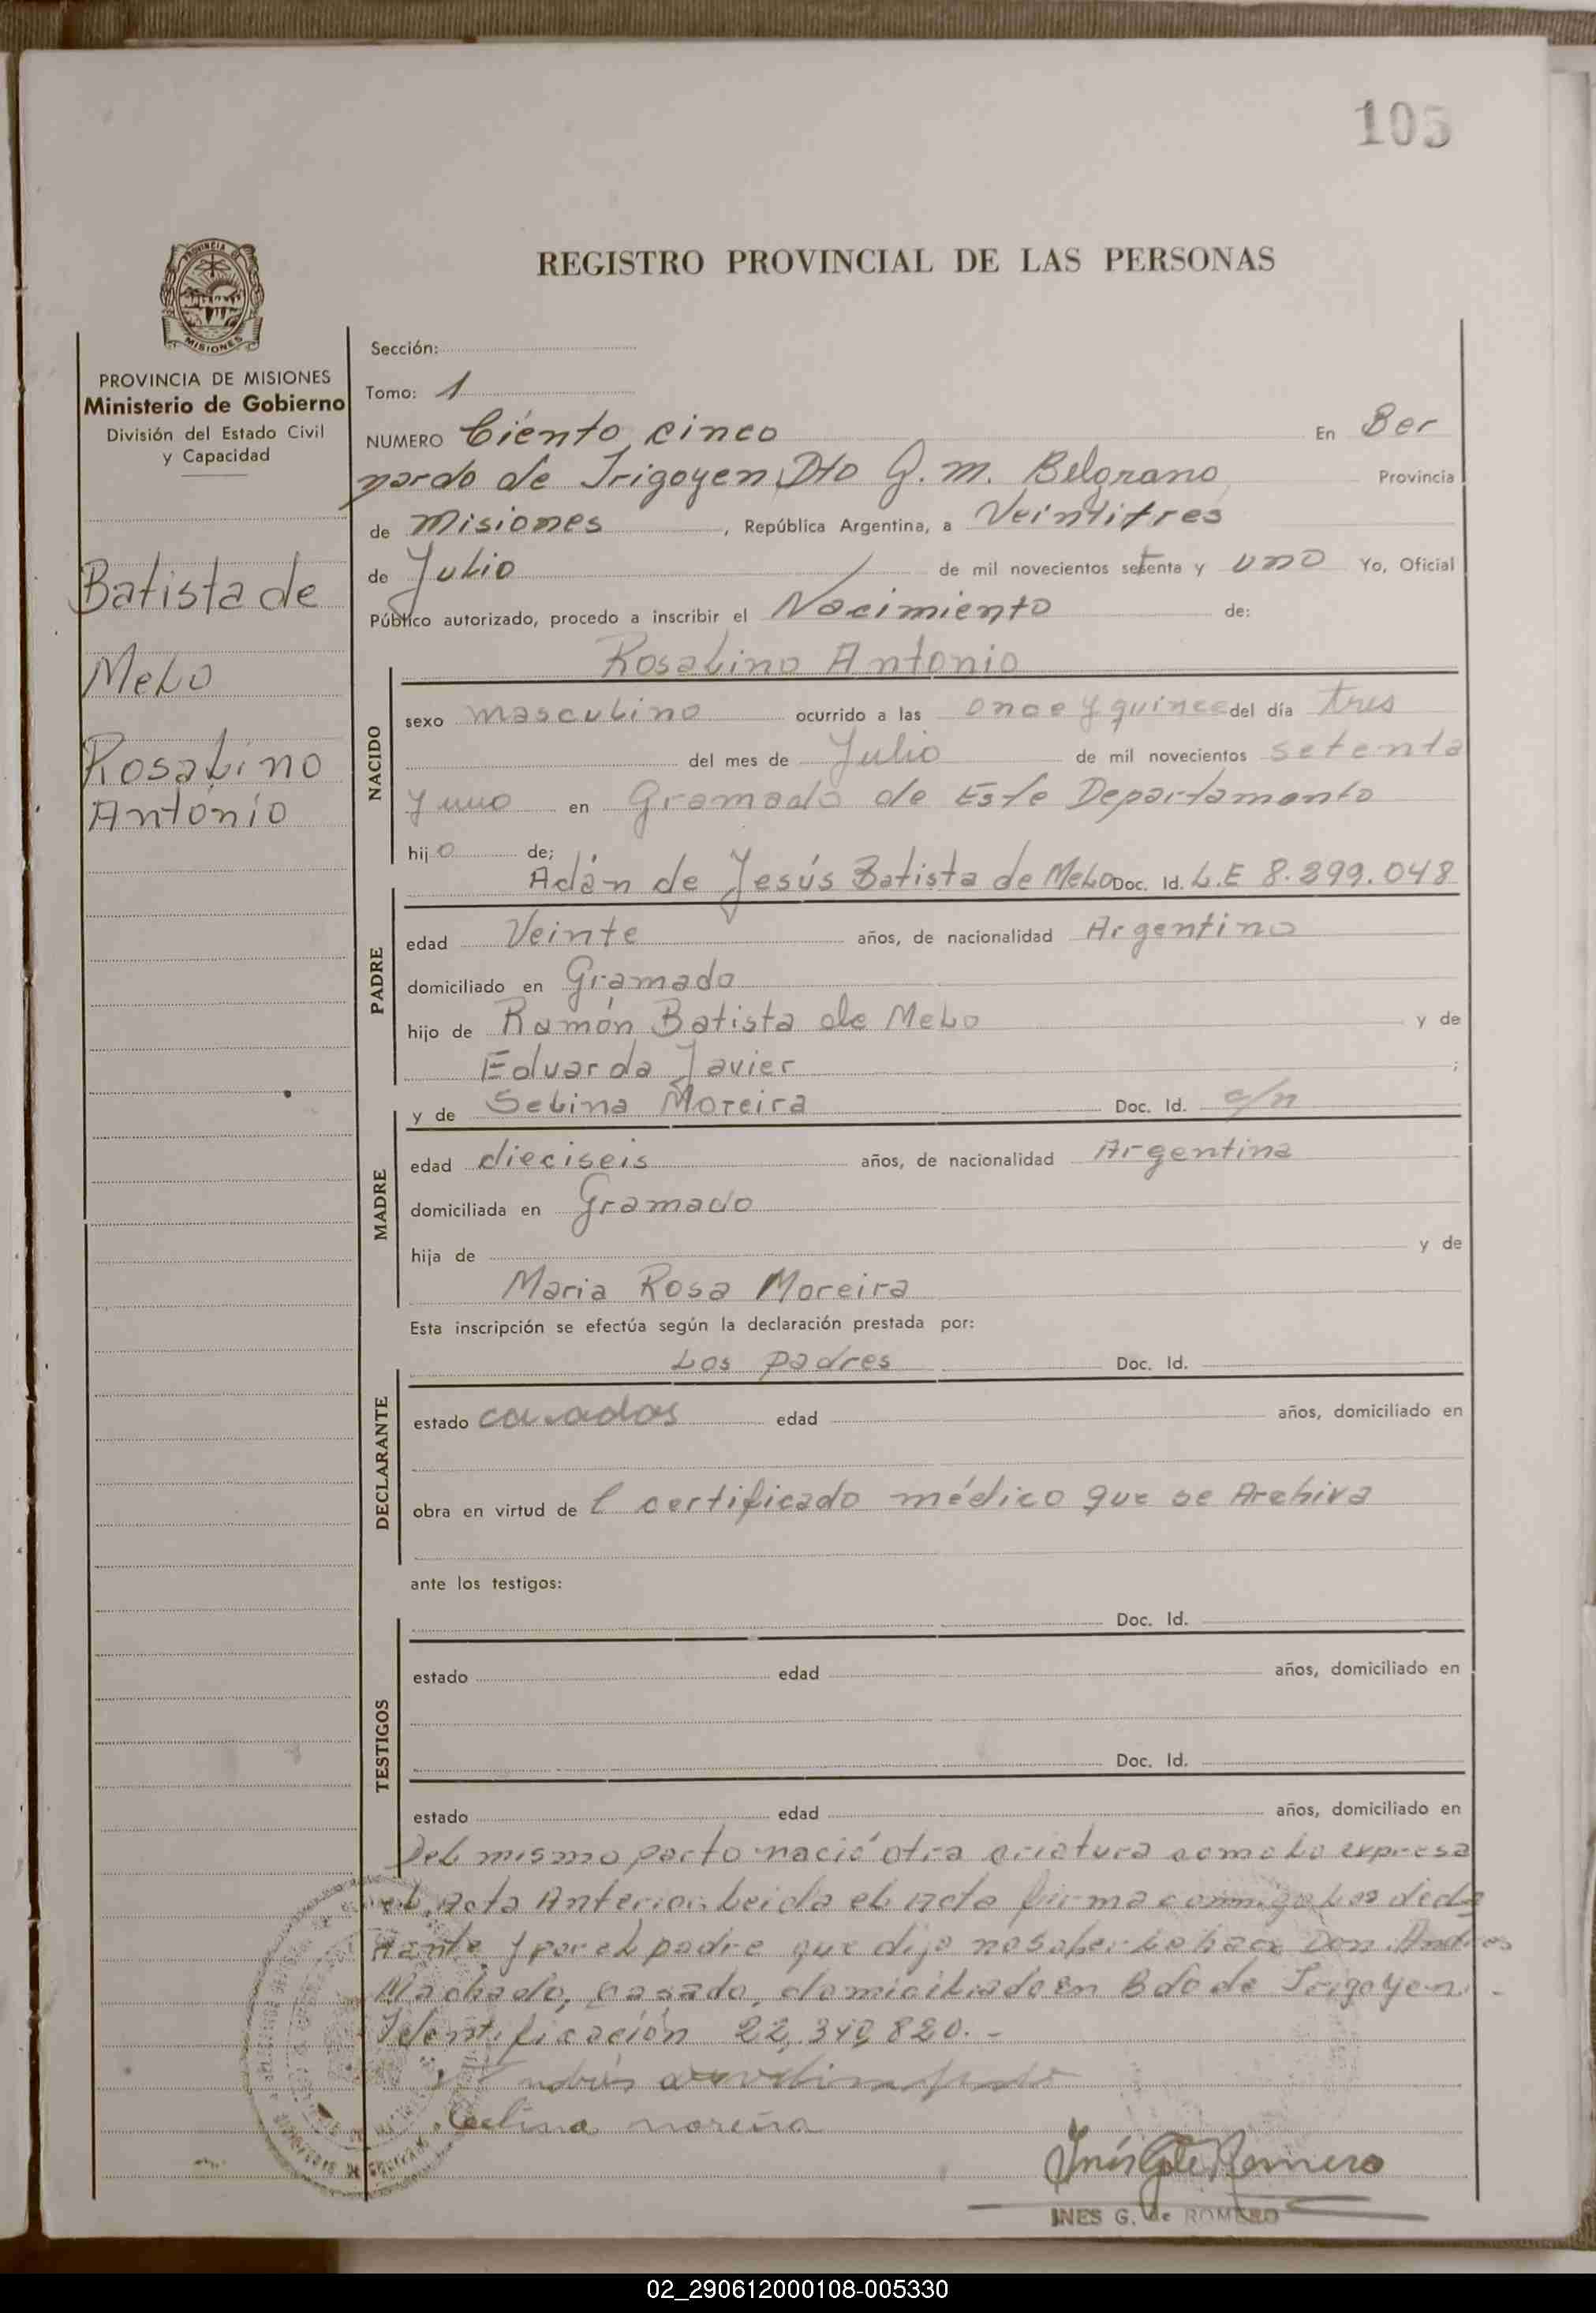 105
REGISTRO PROVINCIAL DE LAS PERSONAS
PROVINCIA
MISIONES
PROVINCIA DE MISIONES
Ministerio de Gobierno
División del Estado Civil
y Capacidad
Batista de
Melo
Rosalino
Antonio
Sección:
Tomo: 1
NUMERO Ciento cinco En Ber
nardo de Irigoyen, Dto G. M. Belgrano Provincia
de Misiones, República Argentina, a Veintitres
de Julio de mil novecientos setenta y uno Yo, Oficial
Público autorizado, procedo a inscribir el Nacimiento de:
Rosalino Antonio
NACIDO
sexo masculino ocurrido a las once y quince del día tres
del mes de Julio de mil novecientos setenta
y uno en Gramado de Este Departamento
hijo de;
Adán de Jesús Batista de Melo Doc. Id. L.E 8.299.048
PADRE
edad Veinte años, de nacionalidad Argentino
domiciliado en Gramado
hijo de Ramón Batista de Melo y de
Eduarda Javier ;
y de Selina Moreira Doc. Id. c/n
MADRE
edad dieciseis años, de nacionalidad Argentina
domiciliada en Gramado
hija de y de
Maria Rosa Moreira
Esta inscripción se efectúa según la declaración prestada por:
Los padres Doc. Id.
DECLARANTE
estado casados edad años, domiciliado en
obra en virtud de l certificado médico que se Archiva
ante los testigos:
Doc. Id.
TESTIGOS
estado edad años, domiciliado en
Doc. Id.
estado edad años, domiciliado en
Del mismo parto nació otra criatura como lo expresa
el acta Anterior. Leida el acta firma conmigo los decla
rante y por el padre que dijo no saber lo hace Don Andres
Machado, casado, domiciliado en Bdo de Irigoyen
Identificación 22,340,820.-
Celina moreira
Inés G de Romero
INES G. de ROMERO
02_290612000108-005330